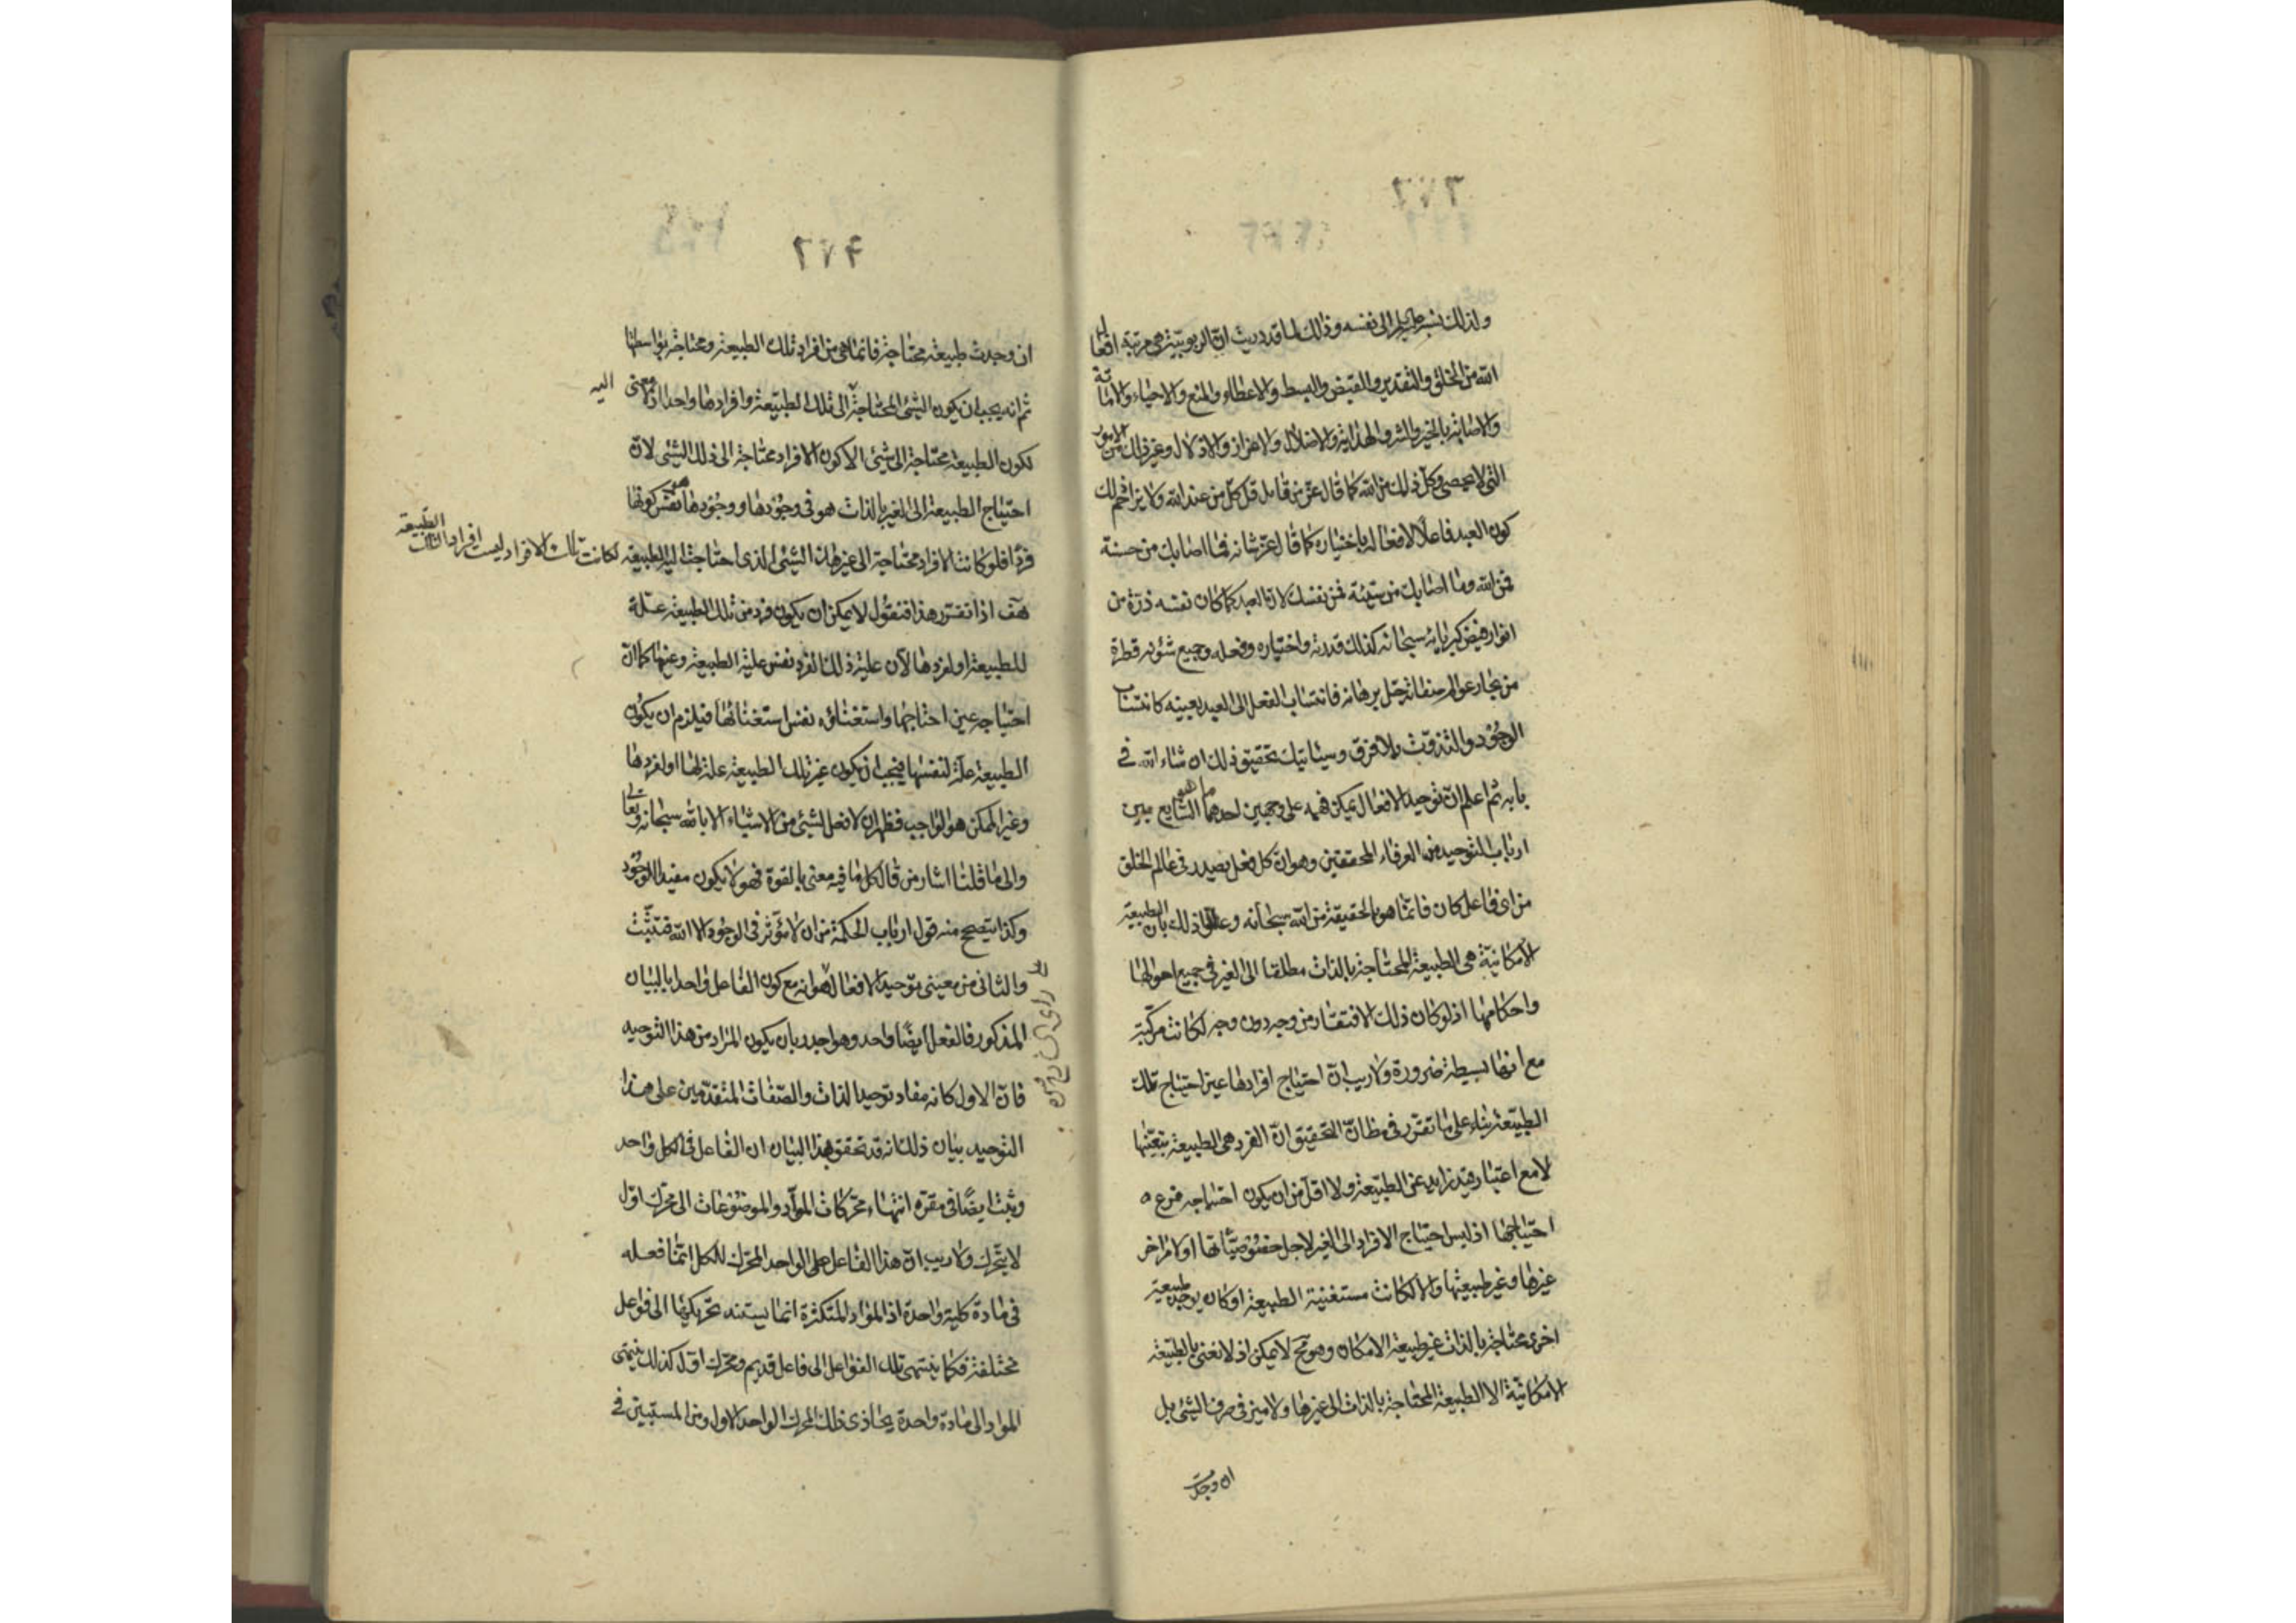 ولذلك نسب عليه السلم الى نفسه وذلك لما قد دريت ان الربوبية هى مرتبة افعال
الله من الخلق والتقدير والقبض والبسط والاعطاء والمنع والاحياء والاماتة
والاصابة بالخير والشر والهداية والاضلال والاعزاز والاذلال وغير ذلك من الامور
التى لا يحصى وكل ذلك من الله كما قال عز من قائل قل كل من عند الله ولا يزاحم لك
كون العبد فاعلا لافعاله باختياره كما قال عز شانه فما اصابك من حسنة
فمن الله وما اصابك من سيئة فمن نفسك لان العبد كما كان نفسه ذرة من
انوار فيض كبريائه سبحانه كذلك قدرته واختياره وفعله وجميع شئونه قطرة
من بحار عوالم صفاته جل برهانه فانتساب الفعل الى العبد بعينه كانتساب
الوجود والتذوت ولا فرق وسيأتيك تحقيق ذلك ان شاء الله فى
بابه ثم اعلم ان توحيد الافعال يمكن فهمه على وجهين احدهما ما هو الشايع بين
ارباب التوحيد من العرفاء المحققين وهو ان كل فعل يصدر فى عالم الخلق
من اى فاعل كان فانما هو بالحقيقة من الله سبحانه وعلى ذلك بان الطبيعة
الامكانية هى الطبيعة المحتاجة بالذات مطلقا الى الغير فى جميع احوالها
واحكامها اذ لو كان ذلك الافتقار من وجه دون وجه لكانت مركبة
مع انها بسيطة ضرورة ولا ريب ان احتياج افرادها عين احتياج تلك
الطبيعة بناء على ما تقرر فى مظان التحقيق ان الفرد هى الطبيعة بتعينها
لا مع اعتبار قيد زايد عن الطبيعة ولا اقل من ان يكون احتياجه فرع
احتياجها اذ ليس احتياج الافراد الى الغير لاجل خصوصياتها او لامر اخر
غيرها وغير طبيعتها والا لكانت مستغنية الطبيعة او كان يوجد طبيعة
اخرى محتاجة بالذات غير طبيعة الامكان وهو مح لا يمكن اذ لا نعنى بالطبيعة
الامكانية الا الطبيعة المحتاجة بالذات الى غيرها ولا ميز فى صرف الشئ بل
ان وجدت
٦٧٦
ان وجدت طبيعة محتاجة فانما هى من افراد تلك الطبيعة ومحتاجة بواسطتها
ثم انه يجب ان يكون الشئ المحتاجة اليه تلك الطبيعة وافرادها واحدا اذ لا معنى
لكون الطبيعة محتاجة الى شئ الا كون الافراد محتاجة الى ذلك الشئ لان
احتياج الطبيعة الى الغير بالذات هو فى وجودها ووجودها هو نفس كونها
فردا فلو كانت الافراد محتاجة الى غير هذا الشئ الذى احتاجت اليه الطبيعة لكانت تلك الافراد ليست افرادا لتلك الطبيعة
هف اذا تقرر هذا فنقول لا يمكن ان يكون فرد من تلك الطبيعة علة
للطبيعة او لفردها لان علية ذلك الفرد نفس علية الطبيعة وعينها كما ان
احتياجه عين احتياجها واستغناؤه نفس استغنائها فيلزم ان يكون
الطبيعة علة لنفسها فيجب ان يكون غير تلك الطبيعة علة لها او لفردها
وغير الممكن هو الواجب فظهر ان لا فعل لشئ من الاشياء الا بالله سبحانه وتعالى
والى ما قلنا اشار من قال كل ما فيه معنى بالقوة فهو لا يكون مفيد الوجود
وكذا يتصحح منه قول ارباب الحكمة من ان لا مؤثر فى الوجود الا الله فتثبت
والثانى من معينى توحيد الافعال هو انه مع كون الفاعل واحدا بالبيان
المذكور فالفعل ايضا واحد وهو اجدر بان يكون المراد من هذا التوحيد
فان الاول كانه مفاد توحيد الذات والصفات المتقدمين على هذا
التوحيد بيان ذلك انه قد تحقق بهذا البيان ان الفاعل فى الكل واحد
وثبت ايضا فى مقره انتهاء محركات المواد والموضوعات الى محرك اول
لا يتحرك ولا ريب ان هذا الفاعل على الواحد المحرك للكل انما فعله
فى مادة كلية واحدة اذ المواد المتكثرة انما يستند تحريكها الى فواعل
مختلفة فكما ينتهى تلك الفواعل الى فاعل قديم ومحرك اول كذلك ينتهى
المواد الى مادة واحدة يحاذى ذلك المحرك الواحد الاول ومن المستبين فى